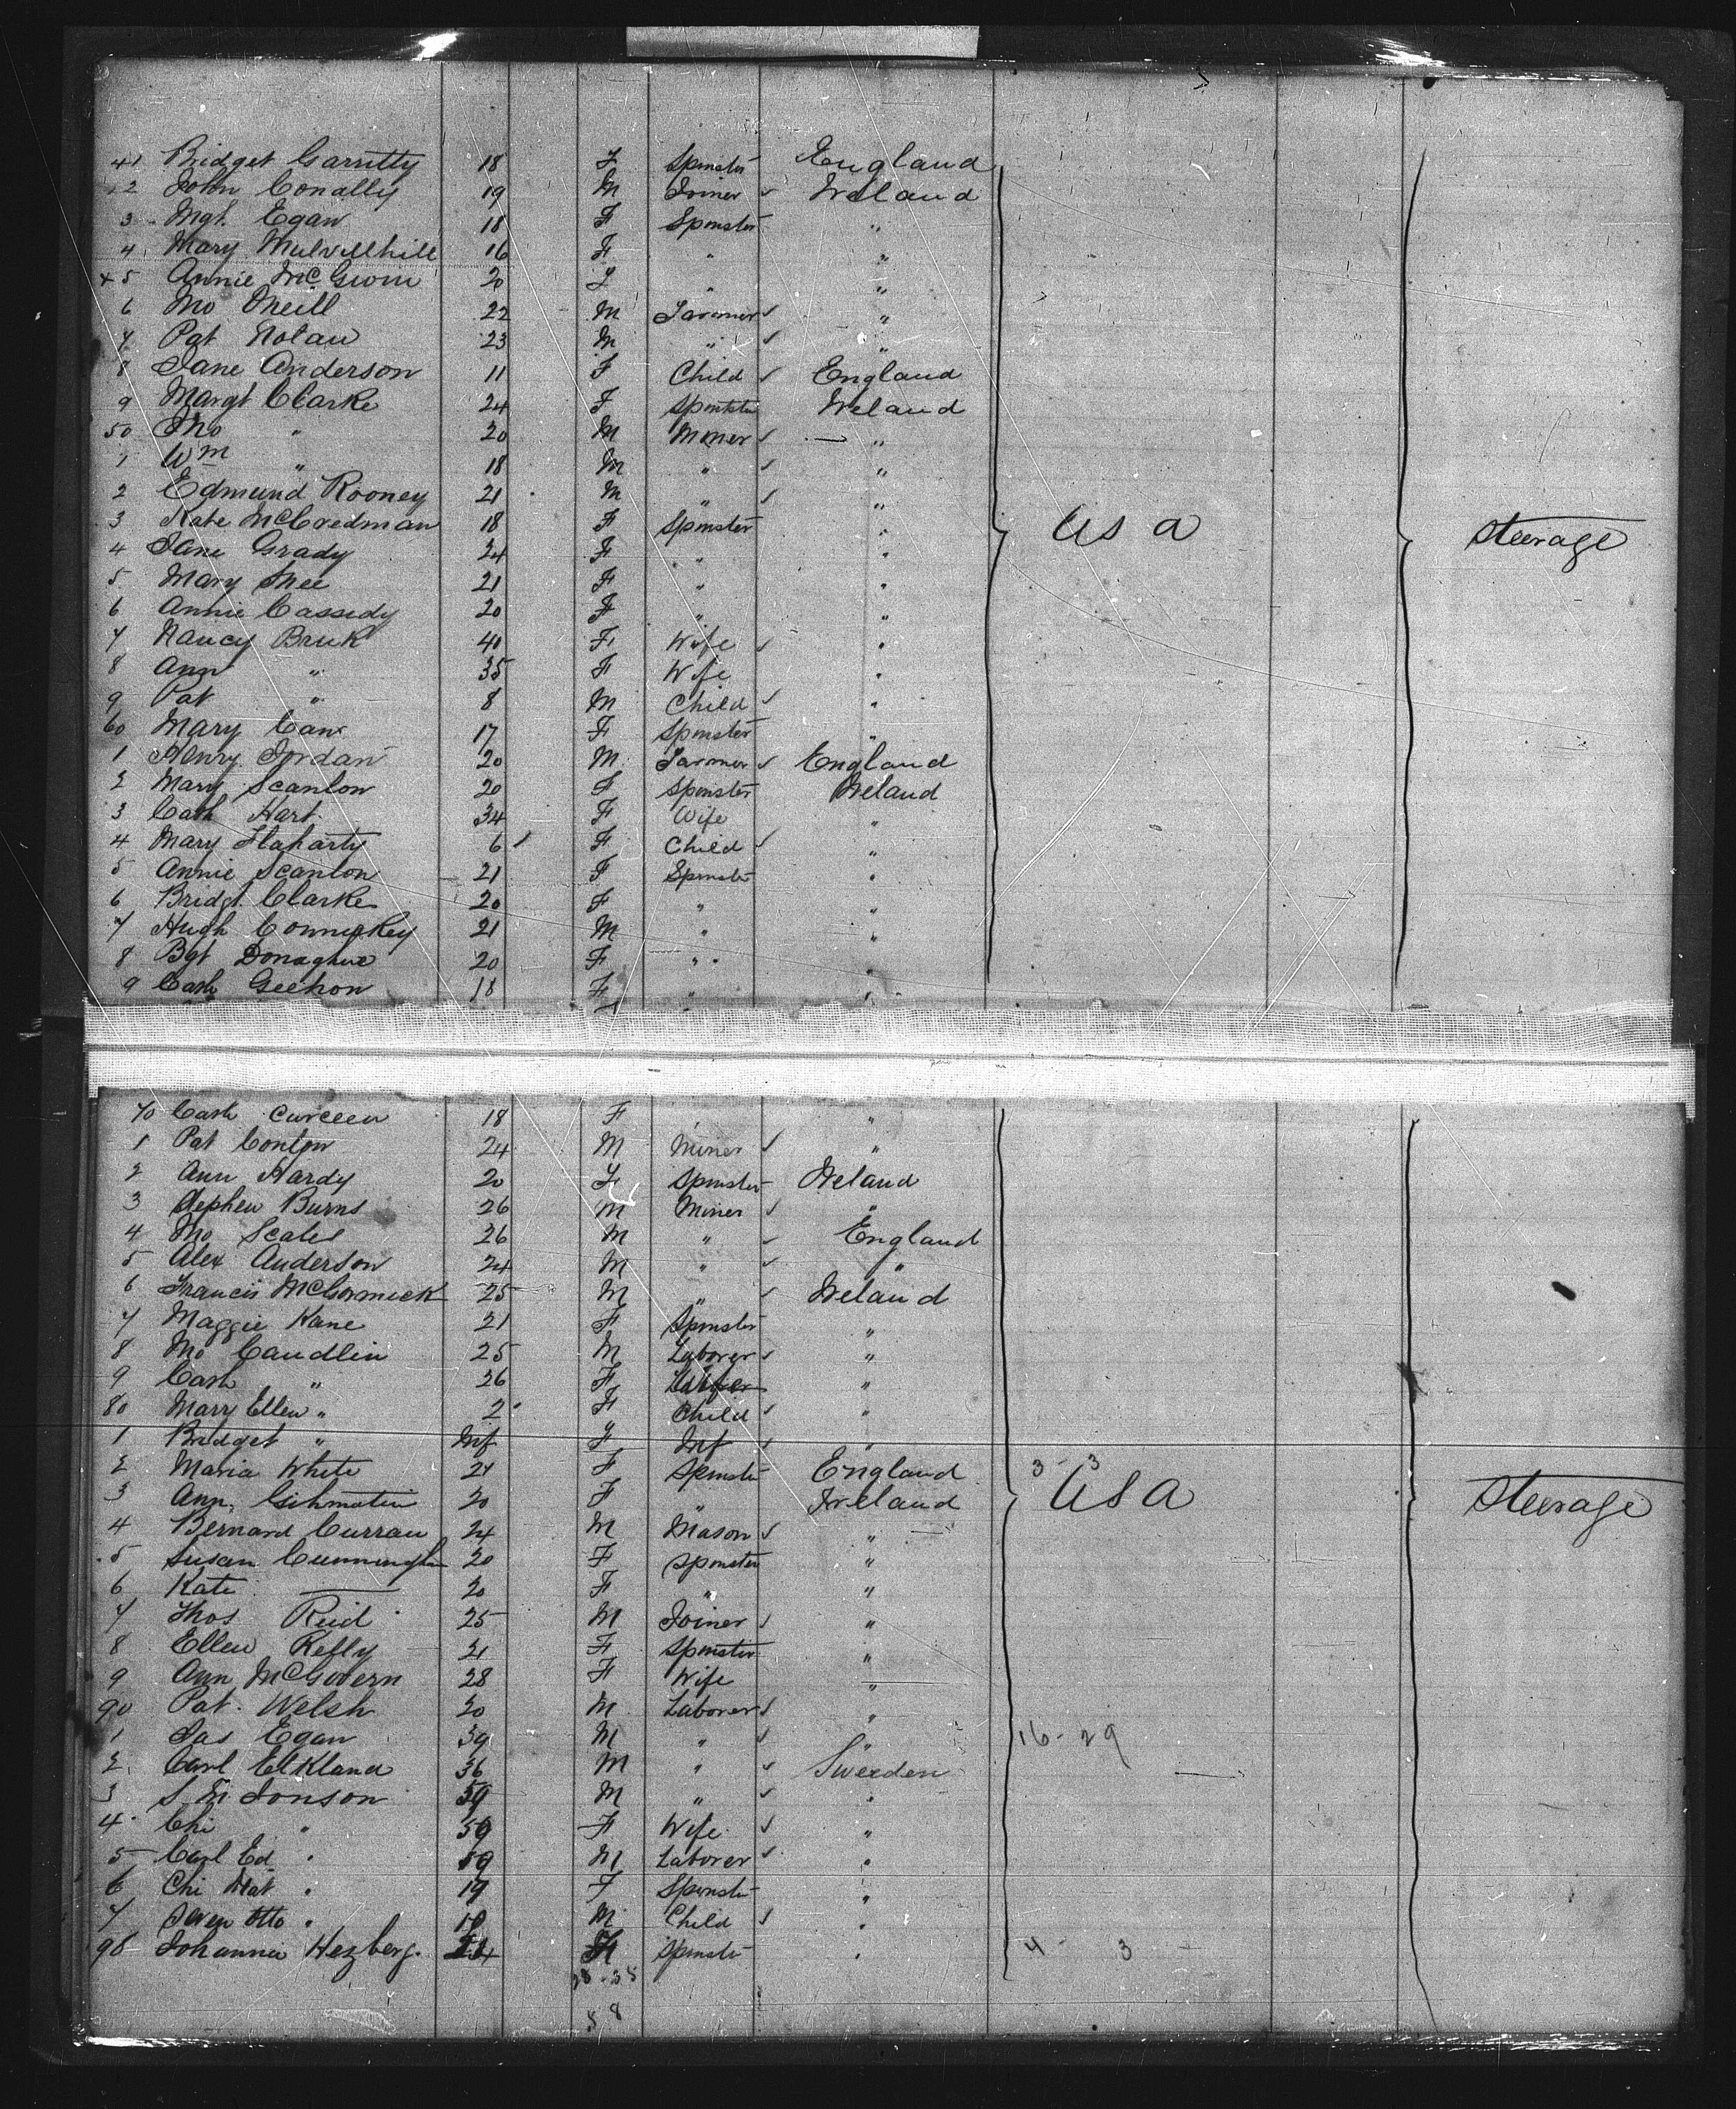 41 Bridget Garritty 18 F Spinster England
2 John Conally 19 M Joiner ✓ Ireland
3 Mgt. Egan 18 F Spinster "
4 Mary Mulvillhill 16 F " "
x 5 Annie McGwin 20 F " "
6 Jno Oneill 22 M Farmer ✓ "
7 Pat Nolan 23 M " ✓ "
8 Jane Anderson 11 F Child ✓ England
9 Margt Clarke 24 F Spinster Ireland
50 Jno " 20 M Miner ✓ "
1 Wm " 18 M " ✓ "
2 Edmund Rooney 21 M " ✓ "
3 Kate McCredman 18 F Spinster " USA Steerage
4 Jane Grady 24 F " "
5 Mary Mee 21 F " "
6 Annie Cassidy 20 F " "
7 Nancy Bruk 40 F Wife ✓ "
8 Ann " 35 F Wife "
9 Pat " 8 M Child ✓ "
60 Mary Cane 17 F Spinster "
1 Henry Jordan 20 M Farmer ✓ England
2 Mary Scanlon 20 F Spinster Ireland
3 Cath Hart 34 F Wife "
4 Mary Flaharty 6 F Child ✓ "
5 Annie Scanlon 21 F Spinster "
6 Bridgt. Clarke 20 F " "
7 Hugh 21 M " "
8 Bgt Donaghue 20 F " "
9 Cath Geehon 18 F " "
70 Cath Curceen 18 F "
1 Pat Conlon 24 M Miner ✓ "
2 Ann Hardy 20 F Spinster Ireland
3 Stephen Burns 26 M Miner ✓ "
4 Jno Scales 26 M " ✓ England
5 Alex Anderson 24 M " ✓ "
6 Francis McCormick 25 M " ✓ Ireland
7 Maggie Kane 21 F Spinster "
8 Jno Caudlin 25 M Laborer ✓ "
9 Cath " 26 F "
80 Mary Ellen " 2 F Child ✓ "
1 Bridget " Inf F Inf ✓ "
2 Maria White 24 F Spinster England 3 - 3
3 Ann 20 F " Ireland USA Steerage
4 Bernard Curran 24 M Mason ✓ "
5 Susan Cunningham 20 F Spinster "
6 Kate —— 20 F " "
7 Thos Reid 25 M Joiner ✓ "
8 Ellen Kelly 21 F Spinster "
9 Ann McGovern 28 F Wife "
90 Pat. Welsh 20 M Laborer ✓ "
1 Jas Egan 39 M " ✓ " 16 - 29
2 Carl Elkland 36 M " ✓ Sweden
3 S. M Jonson 59 M " ✓ "
4 Chi " 59 F Wife ✓ "
5 Carl Ed " 19 M Laborer ✓ "
6 Chi Mat " 19 F Spinster "
7 Sven Otto " M Child ✓ "
98 Johanna Hezberg. 24 F Spinster " 4 - 3
28 - 35
58